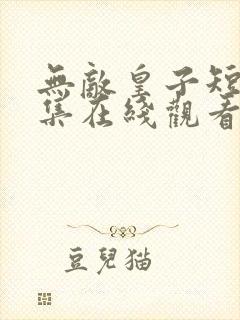 無敵皇子短
集在綫觀看
豆兒貓